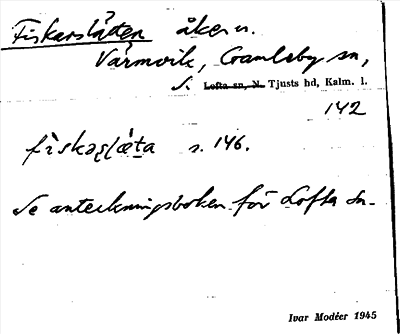 Fiskarslätten åker n.
Värmvik, Gamleby sn,
S. Lofta sn, N. Tjusts hd, Kalm. l.
142
fìskəṣḷæ̀ta s. 146.
Se anteckningsboken för Lofta sn.
Ivar Modéer 1945